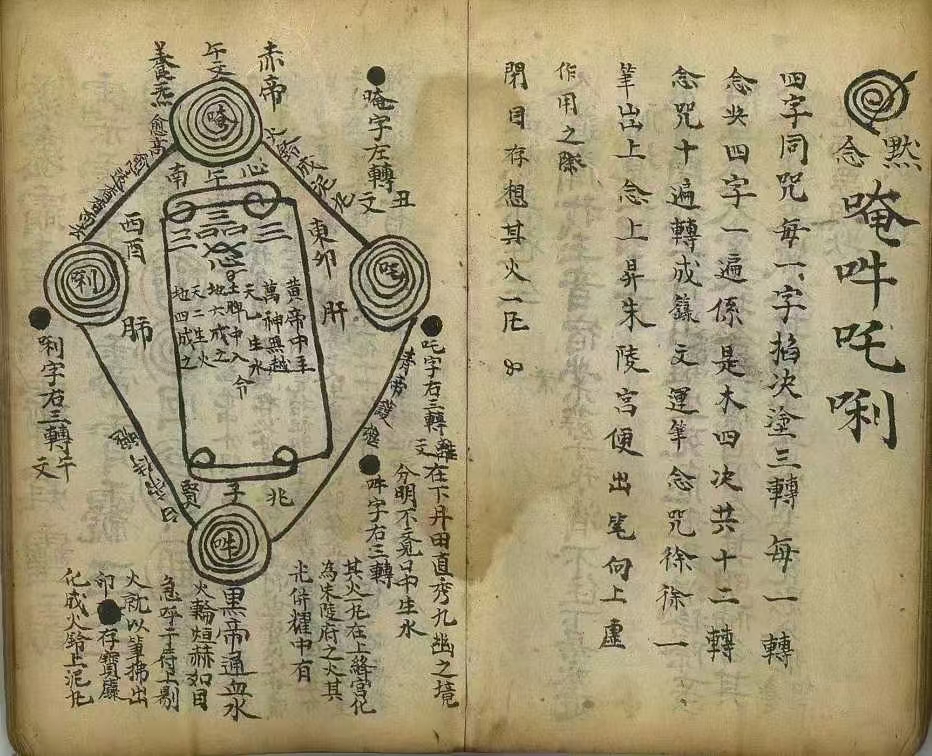 默念
唵吽吒唎
四字同咒每一字掐决塗三轉每一轉
念此四字一遍係是木四次共十二轉
念咒十遍轉成籙文運筆念咒徐徐一
筆出上念上昇朱陵宮便出笔向上虛
作用之際
閉目存想其火一凡
唵字左轉
丑文
赤帝
午文
養炁
愈高
唵
南午心
東卯
肝
吒
西酉
肺
唎
黃帝中主
萬神無越
天一生水
土脾中入令
地六成之
天二生火
地四成之
吒字右三轉
青帝護魂
唎字右三轉午
文
北
子
腎
吽
吽字右三轉
在下丹田直透九幽之境
分明不竟口中生水
其火九在上絳宮化
為朱陵府之火其
光併耀中有
黑帝通血水
火輪烜赫如日
急呼子侍上剔
火就以筆拂出
卯
存寶廉
化成火鈴上泥丸